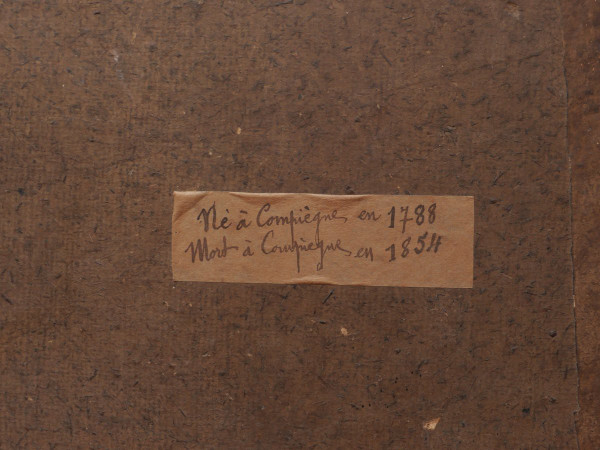 Né à Compiègne en 1788
Mort à Compiègne en 1854